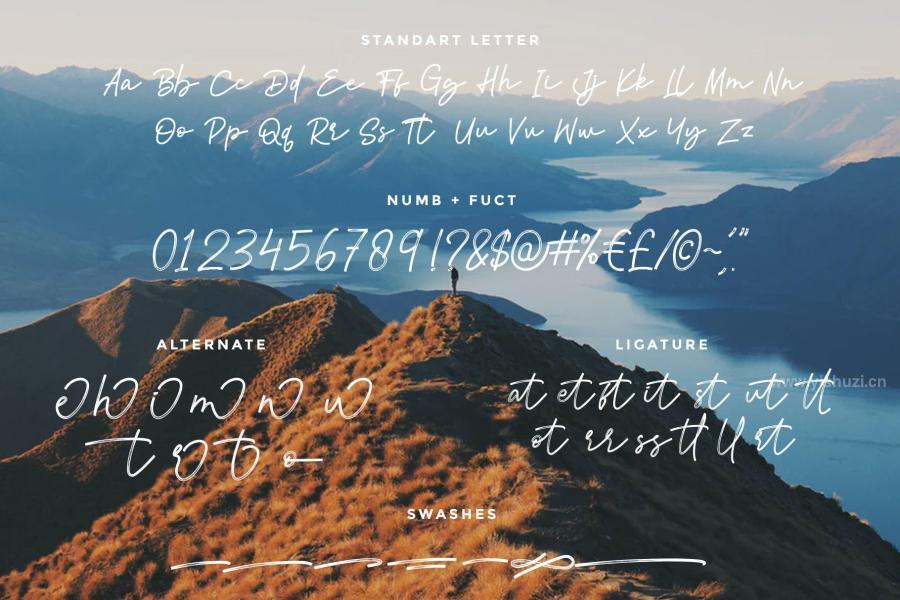 STANDART LETTER
Aa Bb Cc Dd Ee Ff Gg Hh Ii Jj Kk Ll Mm Nn
Oo Pp Qq Rr Ss Tt Uu Vv Ww Xx Yy Zz
NUMB + FUCT
0123456789!?&$@#%€£/©~,'."
ALTERNATE
e h i m n w
t r t o
LIGATURE
at et ft it st ut tt
ot rr ss tt ll rt
SWASHES